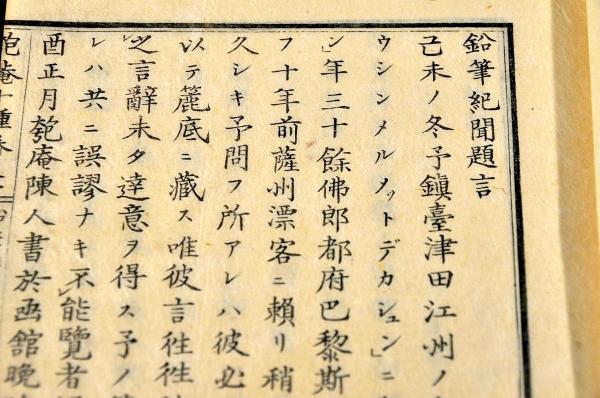 鉛筆紀聞題言
己未ノ冬予鎮臺津田江州ノ
ウシンメルメットデカシュン」ニ
ン」年三十餘佛郎都府巴黎斯
フ十年前薩州漂客ニ賴リ稍
久シキ予問フ所アレハ彼必
以テ簏底ニ藏ス唯彼言徃徃
之言辭未タ達意ヲ得ス予ノ
レハ共ニ誤謬ナキ不能覽者
酉正月匏庵陳人書於凾館晩
匏庵十種